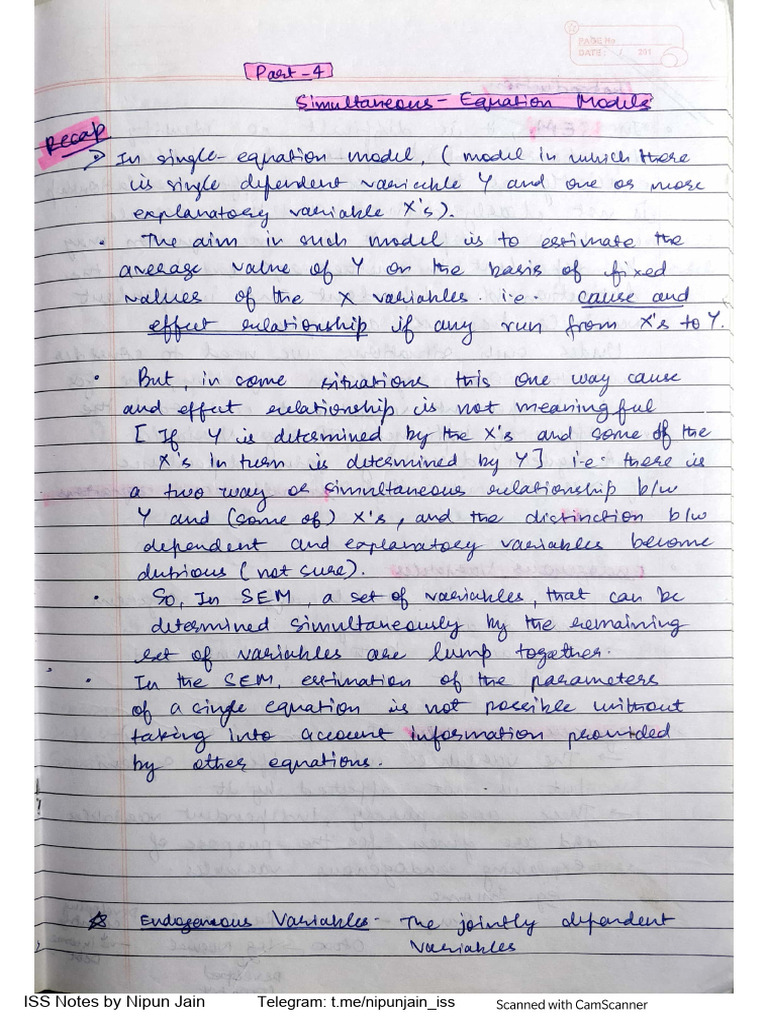 PAGE No.
DATE: / / 201
Part-4
Simultaneous-Equation Models
Recap
→ In single-equation model, (model in which there
is single dependent variable Y and one or more
explanatory variable X's).
• The aim in such model is to estimate the
average value of Y on the basis of fixed
values of the X variables. i.e. cause and
effect relationship if any run from X's to Y.
• But, in some situations this one way cause
and effect relationship is not meaningful
[ If Y is determined by the X's and some of the
X's in turn is determined by Y] i.e. there is
a two way or simultaneous relationship b/w
Y and (some of) X's, and the distinction b/w
dependent and explanatory variables become
dutrious (not sure).
• So, In SEM, a set of variables, that can be
determined simultaneously by the remaining
set of variables are lump together.
• In the SEM, estimation of the parameters
of a single equation is not possible without
taking into account information provided
by other equations.
☆ Endogenous Variables - The jointly dependent
variables
ISS Notes by Nipun Jain Telegram: t.me/nipunjain_iss Scanned with CamScanner